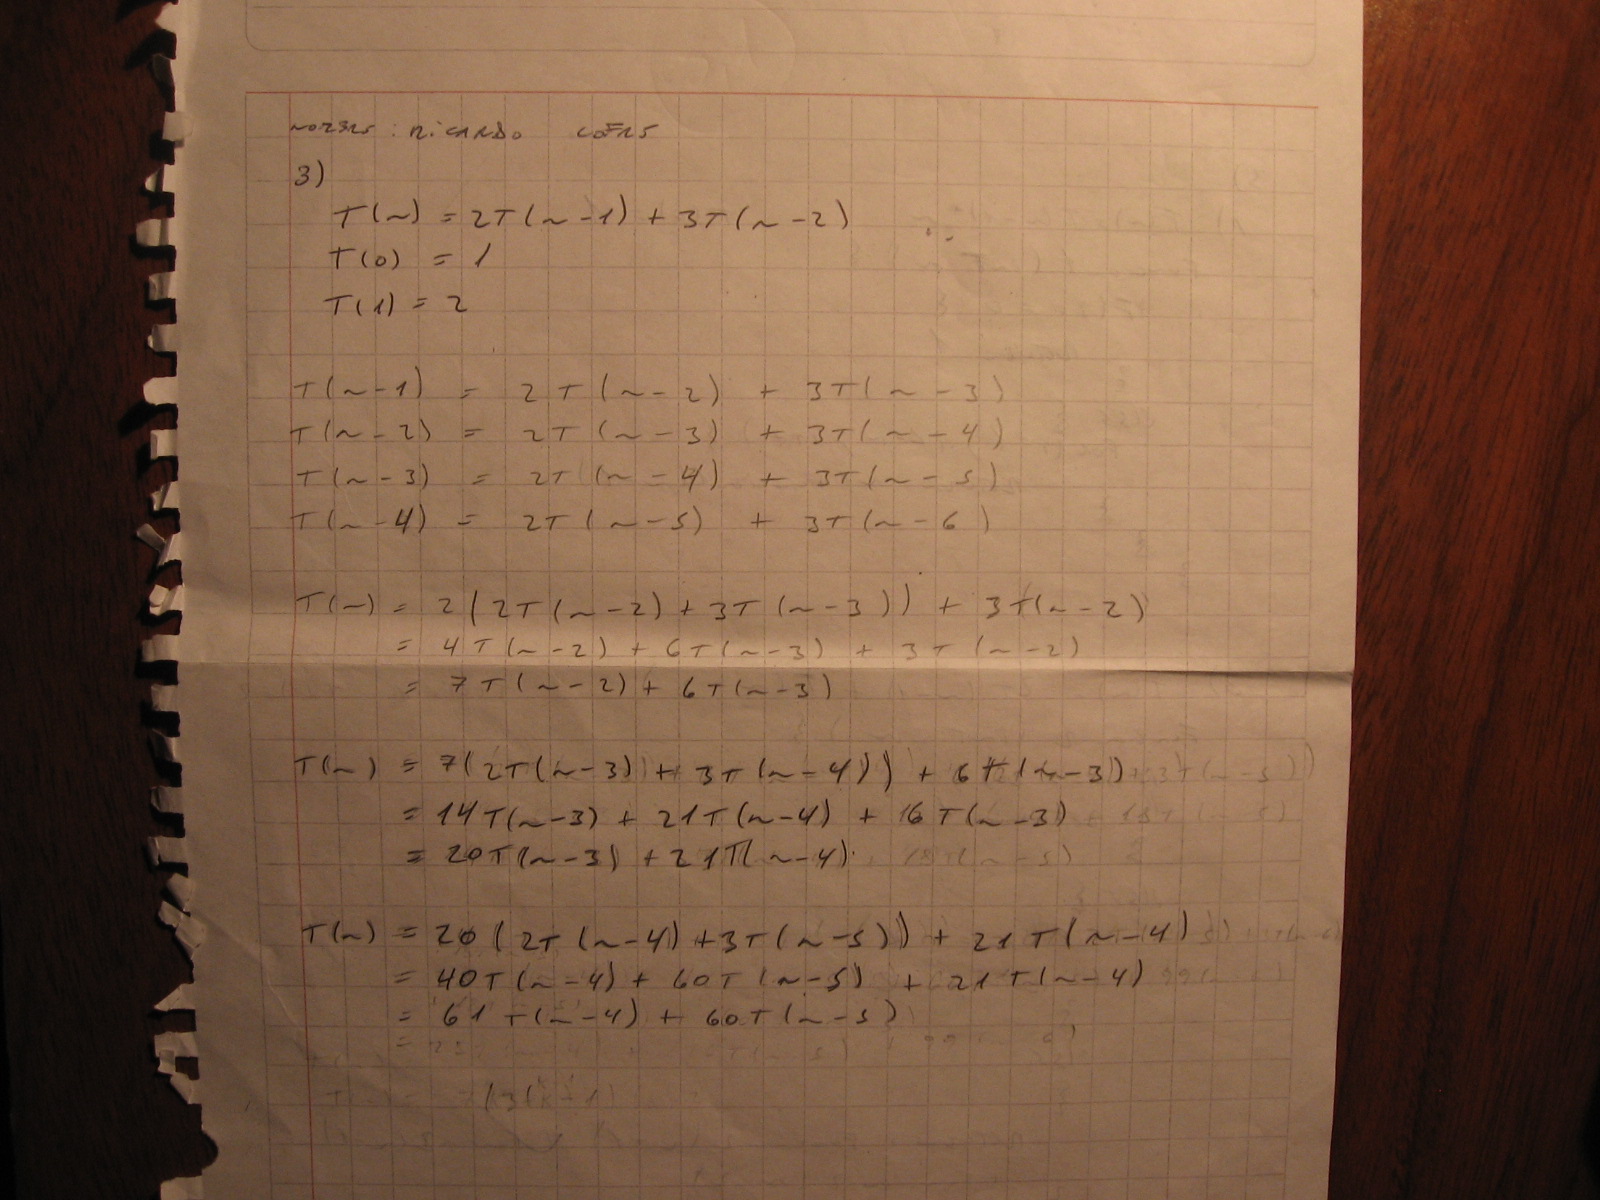 : RICARDO
3)
T(n) = 2T(n-1) + 3T(n-2)
T(0) = 1
T(1) = 2
T(n-1) = 2T(n-2) + 3T(n-3)
T(n-2) = 2T(n-3) + 3T(n-4)
T(n-3) = 2T(n-4) + 3T(n-5)
T(n-4) = 2T(n-5) + 3T(n-6)
T(n) = 2(2T(n-2) + 3T(n-3)) + 3T(n-2)
= 4T(n-2) + 6T(n-3) + 3T(n-2)
= 7T(n-2) + 6T(n-3)
T(n) = 7(2T(n-3) + 3T(n-4)) + 6T(n-3)
= 14T(n-3) + 21T(n-4) + 6T(n-3)
= 20T(n-3) + 21T(n-4)
T(n) = 20(2T(n-4) + 3T(n-5)) + 21T(n-4)
= 40T(n-4) + 60T(n-5) + 21T(n-4)
= 61T(n-4) + 60T(n-5)